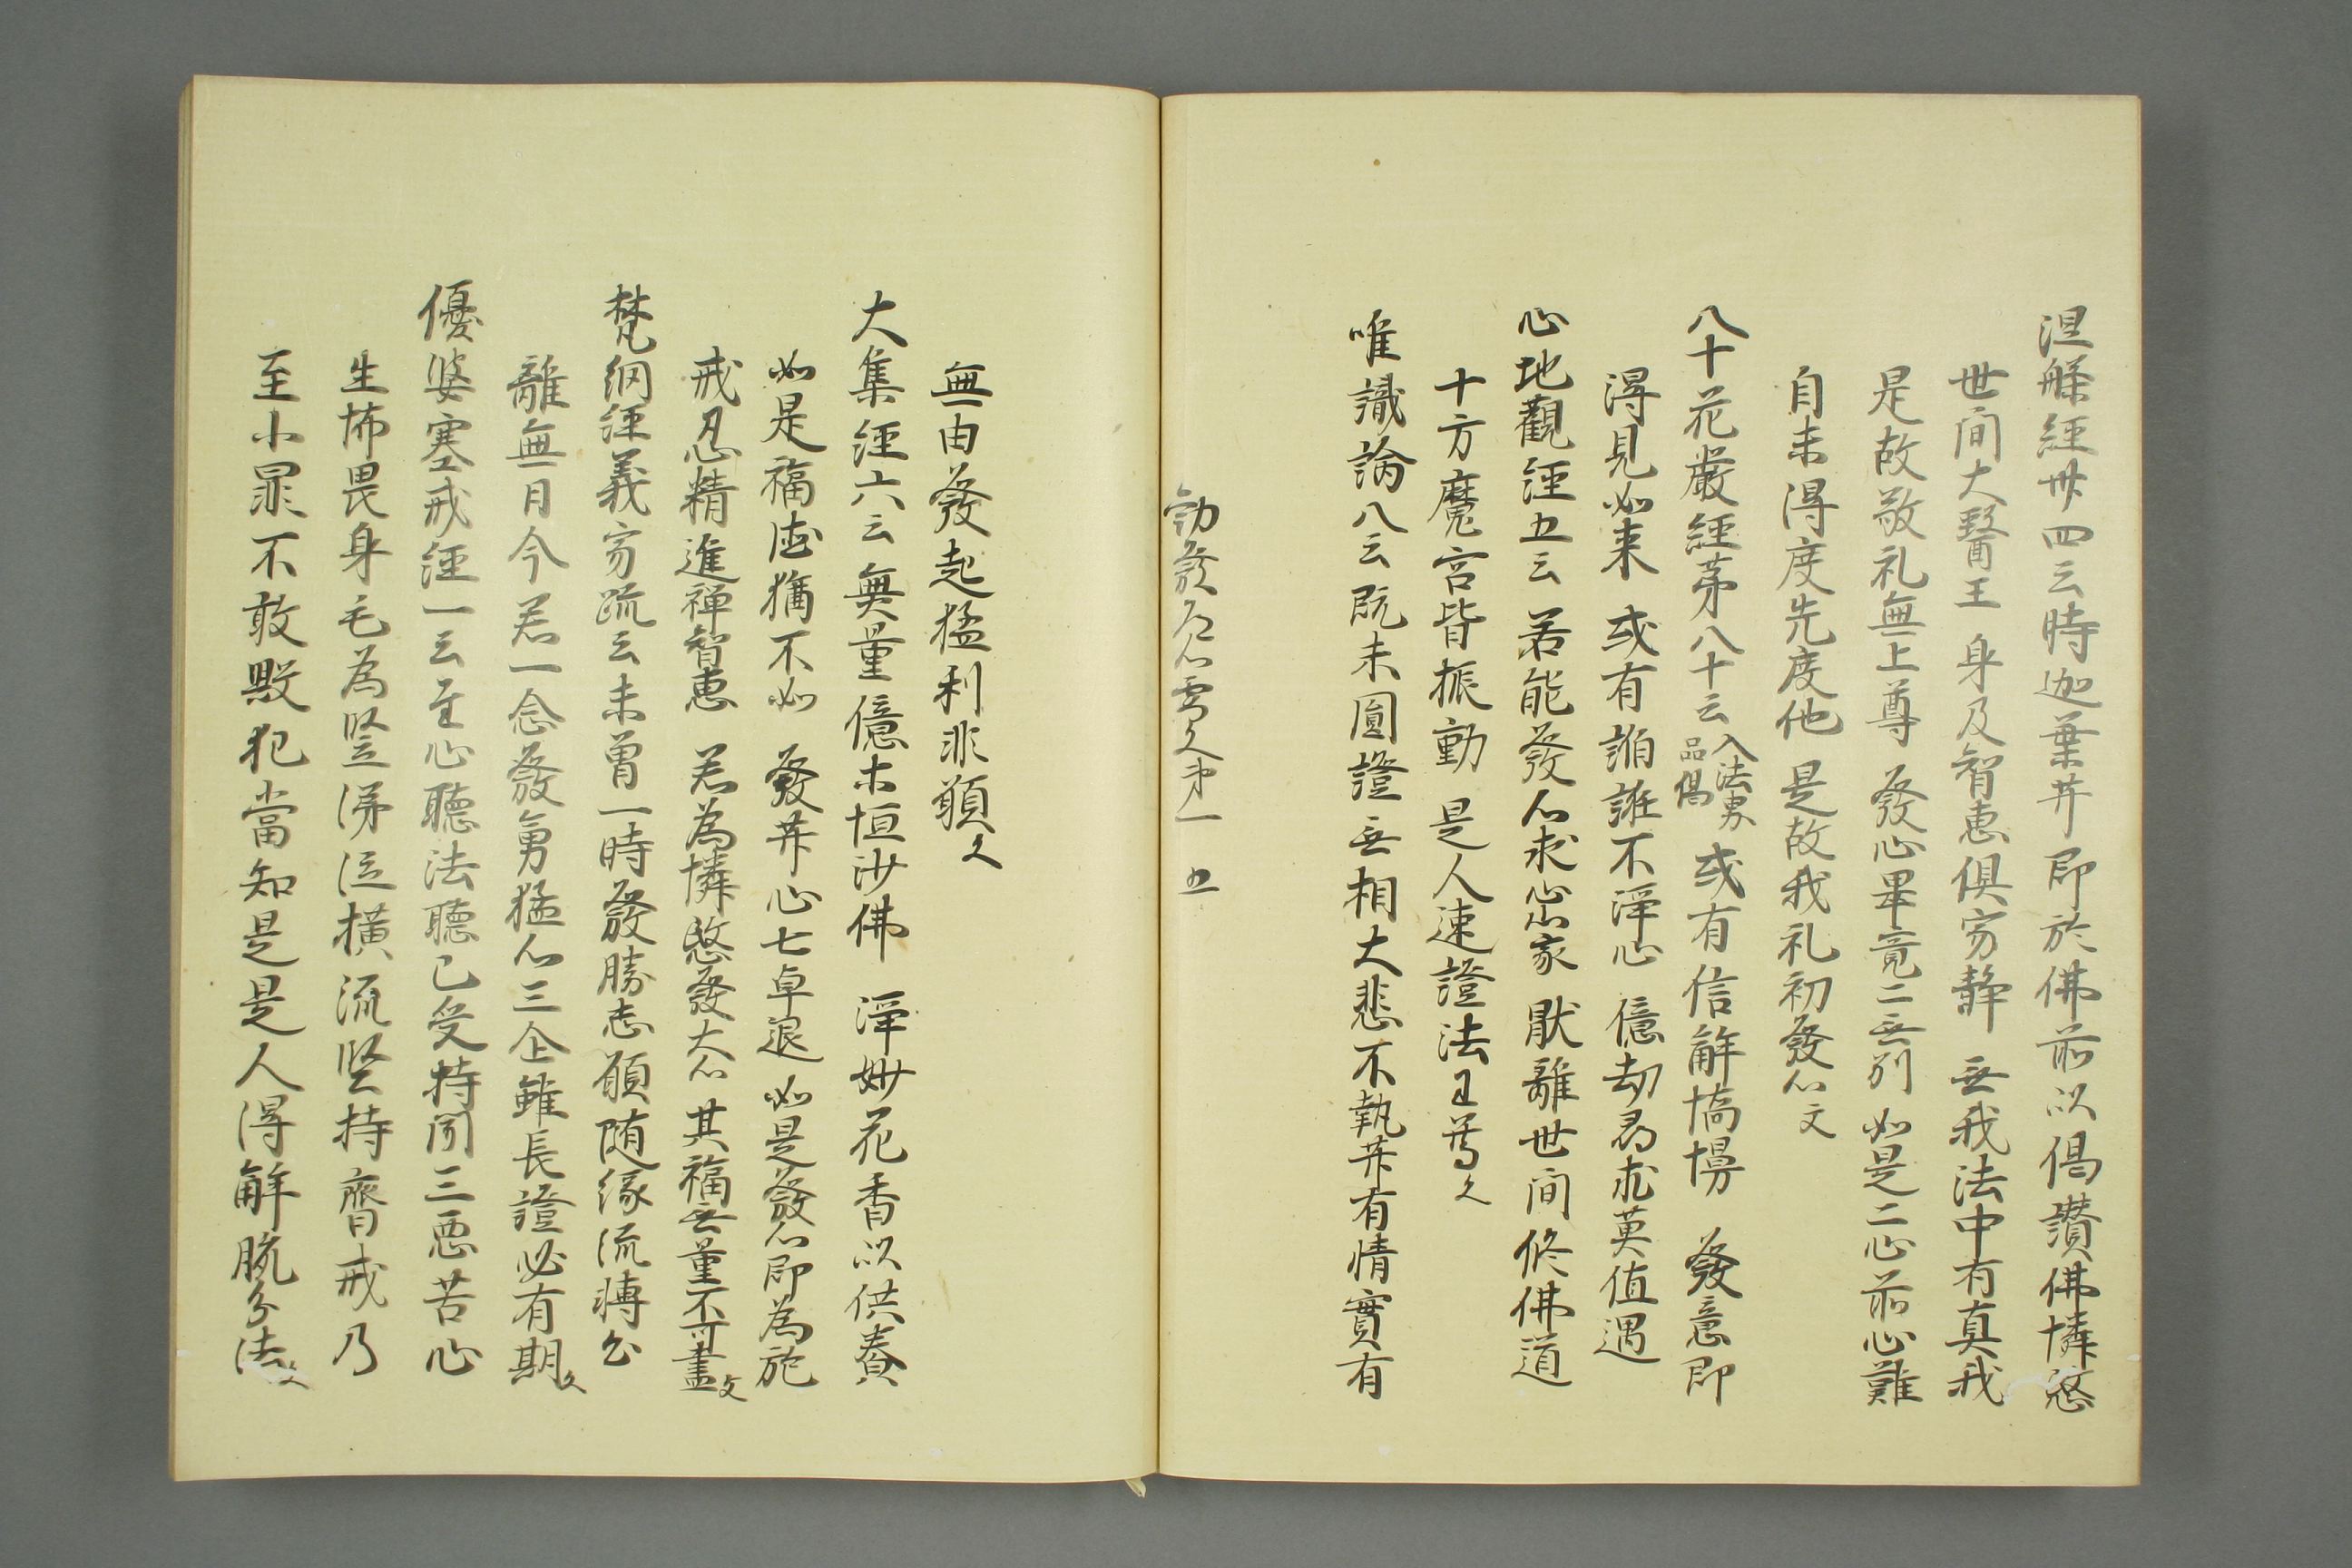 涅槃経卅四云時迦葉井即於佛前以偈讃佛憐愍
世间大醫王 身及智恵俱寂静 无我法中有真我
是故敬礼無上尊 發心畢竟二无別 如是二心前心難
自未得度先度他 是故我礼初發心文
八十花厳経苐八十云入法界品偈 或有信解憍慢 發意即
得見如来 或有謟誑不淨心 億劫尋求莫值遇
心地觀経五云 若能發心求心家 厭離世间修佛道
十方魔宮皆振動 是人速證法王尊文
唯識論八云既未圓證无相大悲不執井有情實有
勸發 心 文苐一 五
無由發起猛利悲願文
大集経六云 無量億 恒沙佛 淨妙花香以供養
如是福徳猶不如 發井心七 退 如是發心即為施
戒忍精進禅智恵 若為憐愍發大心 其福无量不可盡文
梵網経義寂疏云未曽一時發勝志願随縁流轉出
離無月今若一念發勇猛心三企雖長證必有期文
優婆塞戒経一云至心聽法聽已受持聞三悪苦心
生怖畏身毛為竪涕泣横流堅持齊戒乃
至小罪不敢毀犯當知是是人得解脱分法文